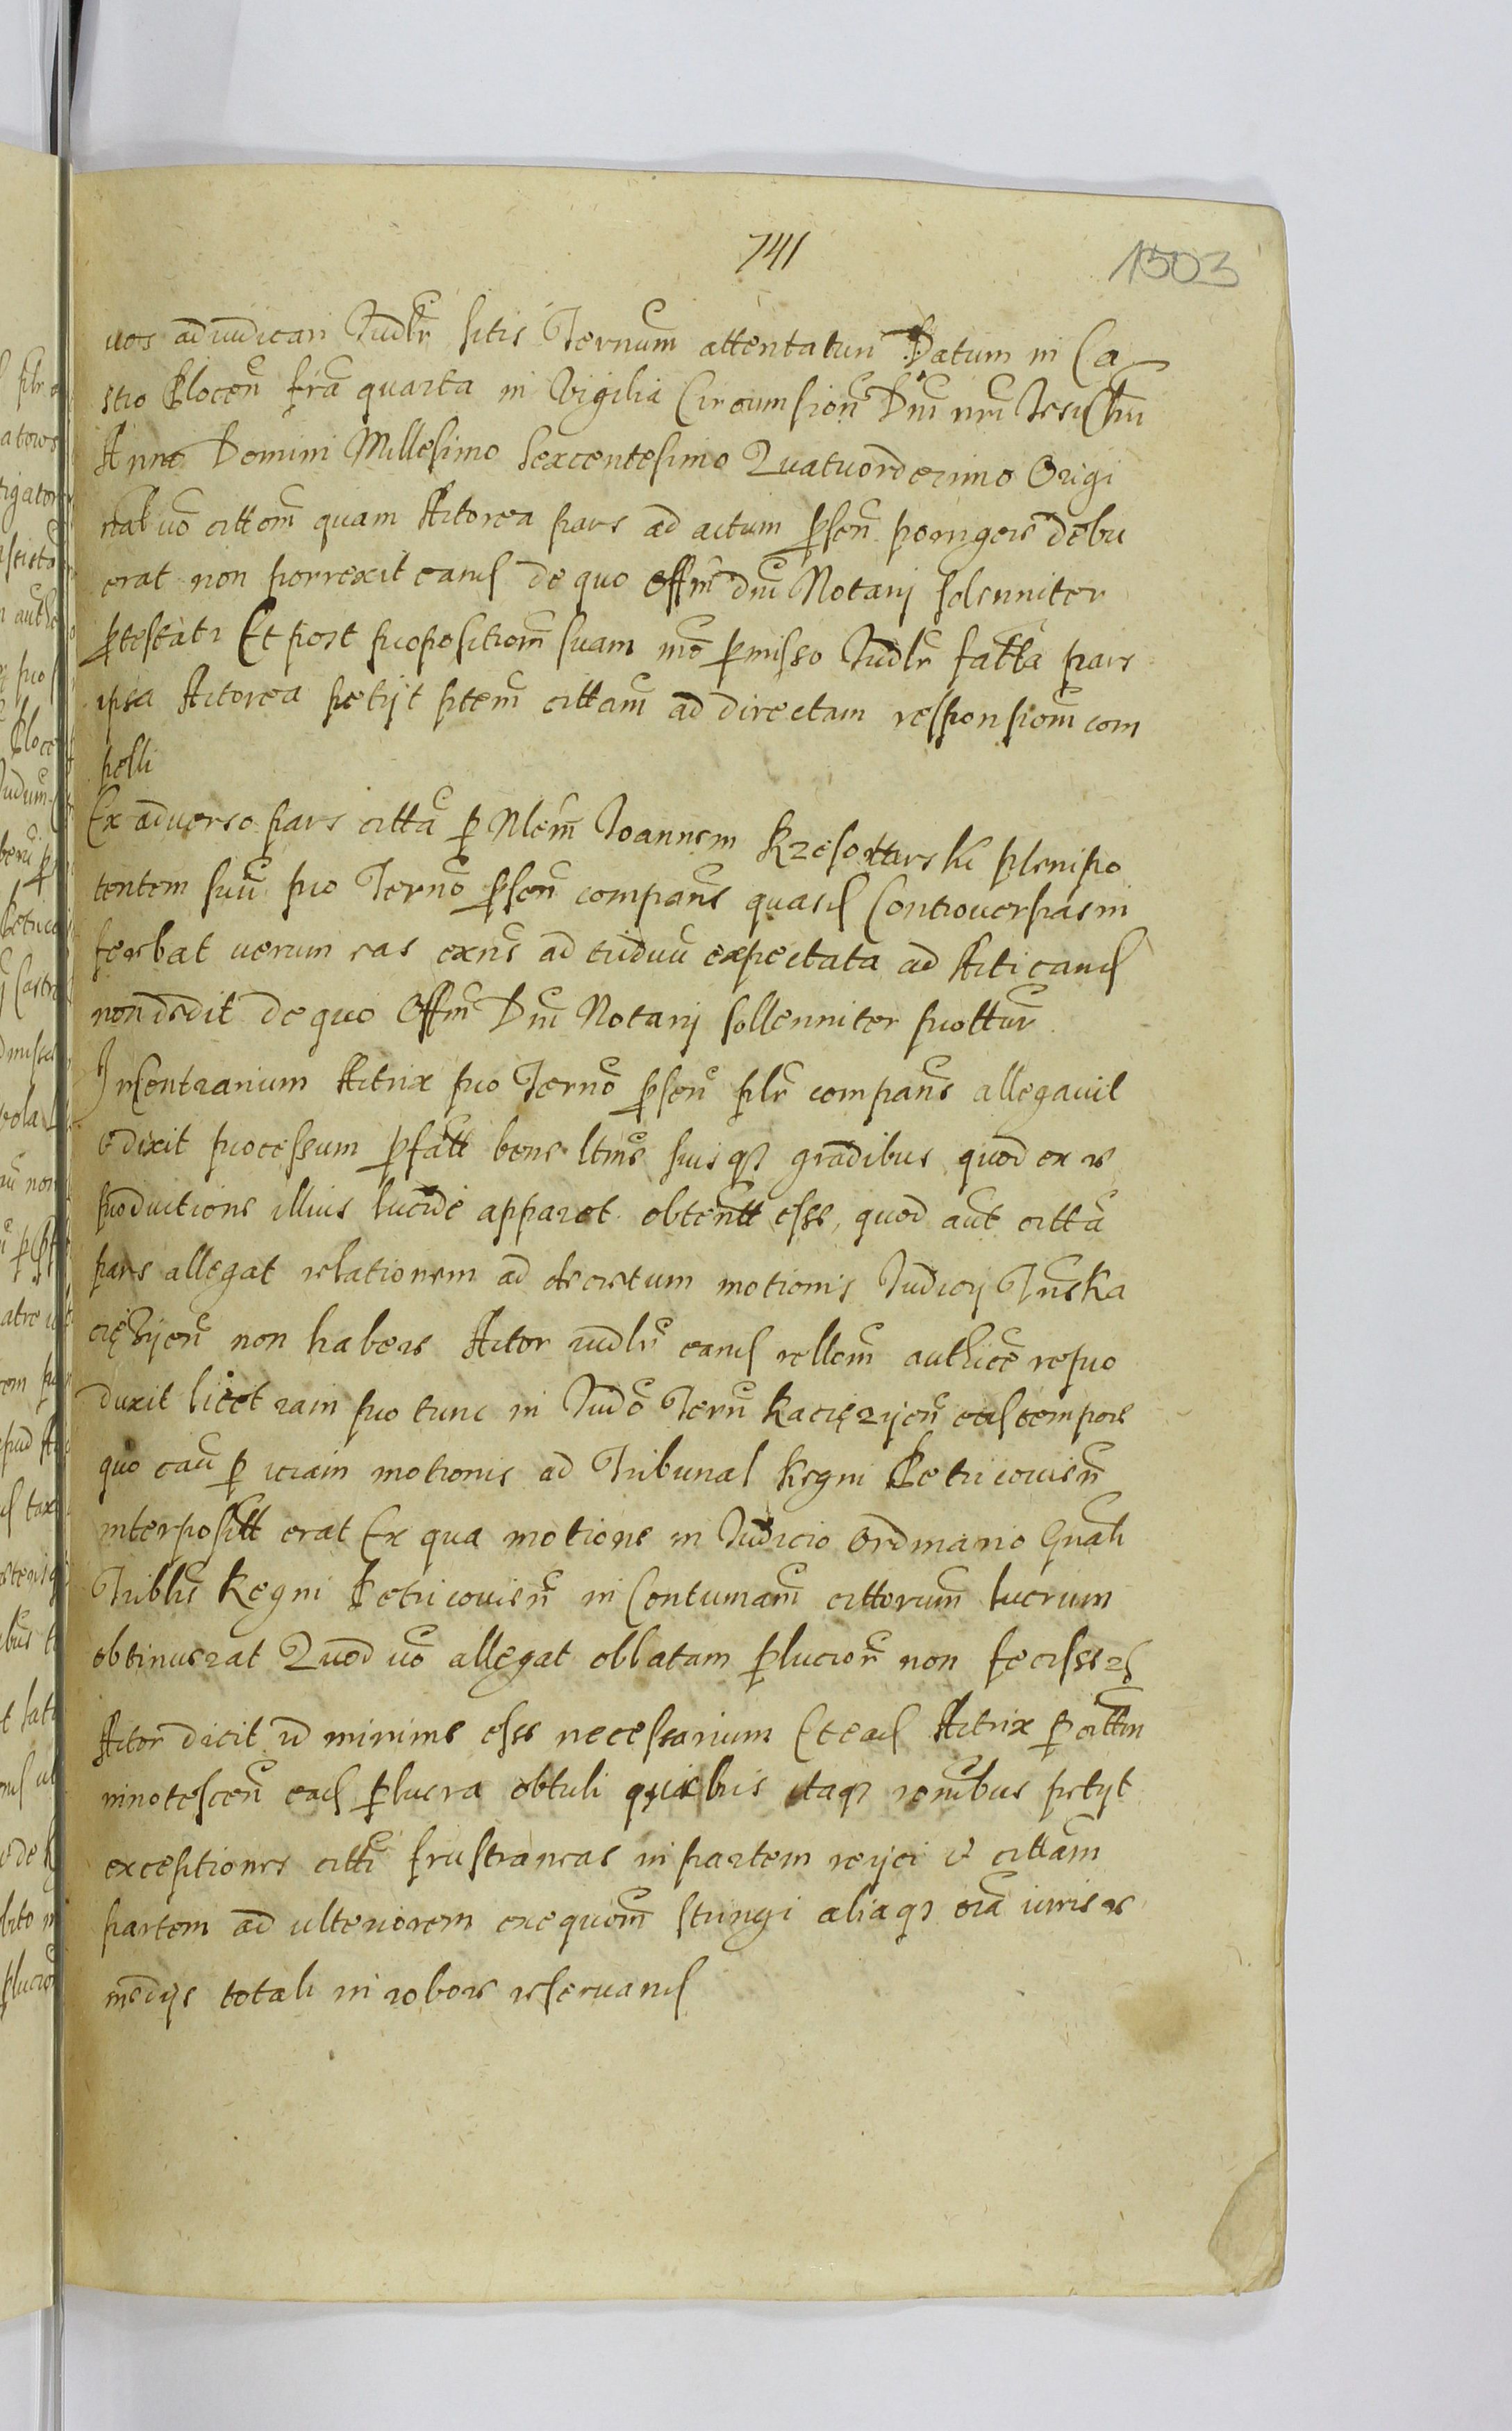 741
1503
uos adiudicari Iudlr sitis Ternum attentaturi Datum in Ca
stro Plocen fra quarta in Vigilia Circumsion Dni nri Iesu Chri
Anno Domini Millesimo Sexcentesimo Quatuordecimo Origi
nal vo cittem quam Actorea pars ad actum psen porrigere debu
erat non porrexit eand de quo Offm dni Notarij solenniter
ptestatr Et post propositiom suam mo pmisso Iudlr factta pars
ipsa Actorea petijt ptem cittam ad directam responsiom com
pelli
Ex aduerso pars citta p Nlem Ioannem Krzeso ski plenipo
tentem suu pro Terno psen compans quasd Controuersias in
ferebat uerum eas exns ad triduu expectata ad Acticand
non dedit de quo Offm Dni Notarij sollenniter prottur
In Contrarium Actrix pro Terno psen plr compans allegauit
& dixit processum pfatt bene ltme suisq gradibus quod ex re
productione illius lucide apparet obtentt esse, quod aut citta
pars allegat relationem ad decretum motionis Iudicij Trns Ka
ciężijen non habere Actor iudlr eand rellem authice repro
duxit licet iam pro tunc in Iudo Tern Racięzijen eod tempore
quo cau p viam motionis ad Tribunal Regni Petricouien
interpositt erat Ex qua motione in Iudicio Ordinario Gnali
Triblis Regni Petricouien in Contumam cittorum lucrum
obtinuerat Quod vo allegat oblatam plucior non fecisse
Actor dicit id minime esse necessarium Et ead Actrix p cittm
innotescen ead plucra obtuli quibus itaq ronibus petijt
exceptiones citti frustraneas in partem reijci & cittam
partem ad ulteriorem exequom stringi aliaq oia iuris re
medijs totali in robore reseruand